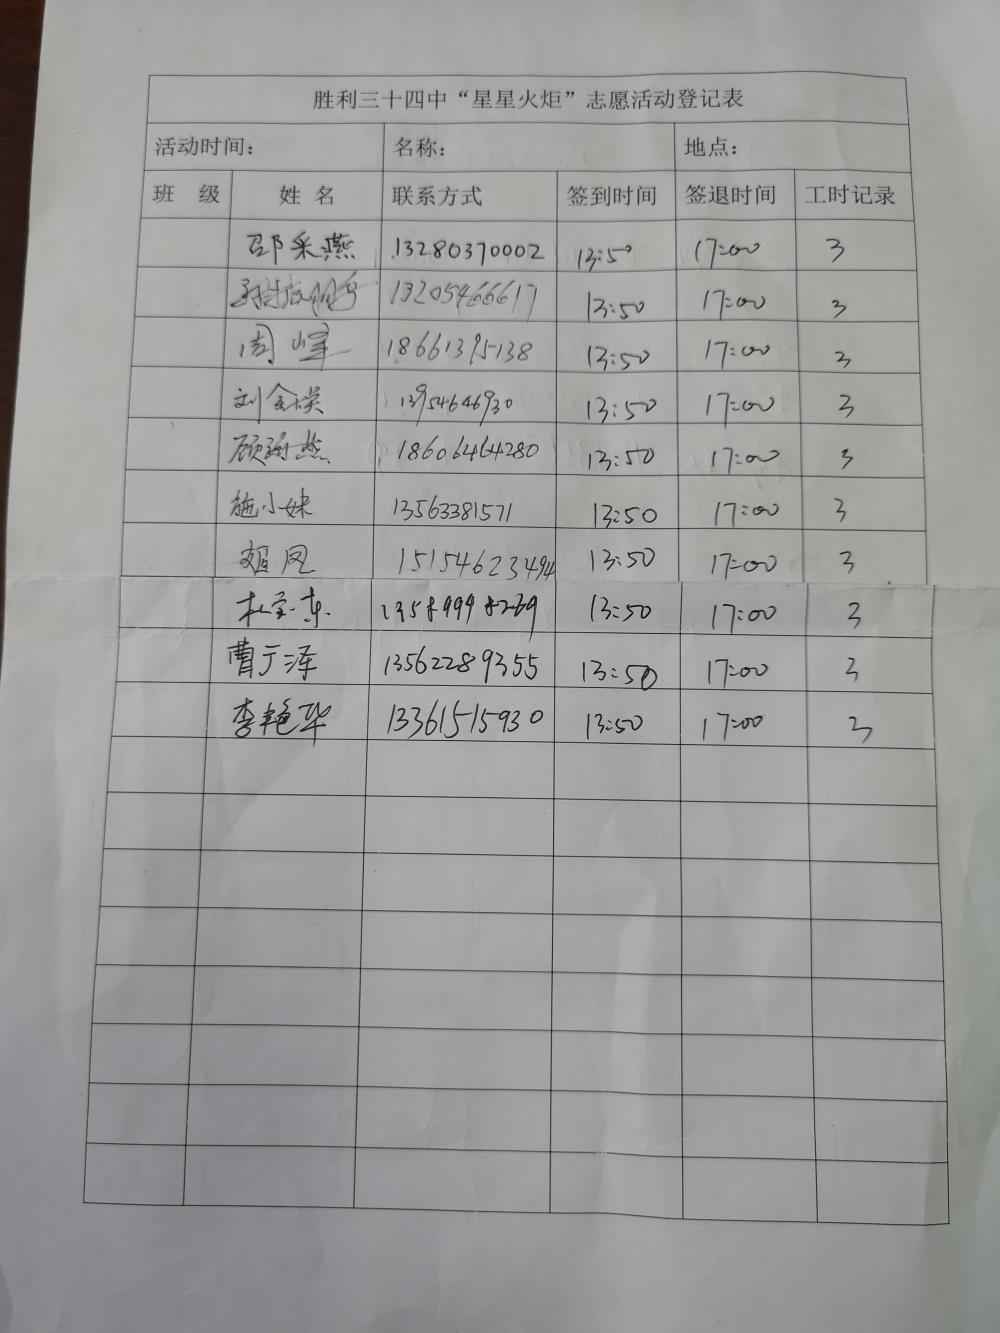 胜利三十四中“星星火炬”志愿活动登记表
活动时间： 名称： 地点：
班 级 姓 名 联系方式 签到时间 签退时间 工时记录
邵采燕 13280370002 13:50 17:00 3
13205466617 13:50 17:00 3
周峰 18661395138 13:50 17:00 3
刘金 13954646930 13:50 17:00 3
顾 燕 18606464280 13:50 17:00 3
施小妹 13563381571 13:50 17:00 3
凤 15154623494 13:50 17:00 3
杜 东 13:50 17:00 3
曹于泽 13562289355 13:50 17:00 3
李艳华 13361515930 13:50 17:00 3